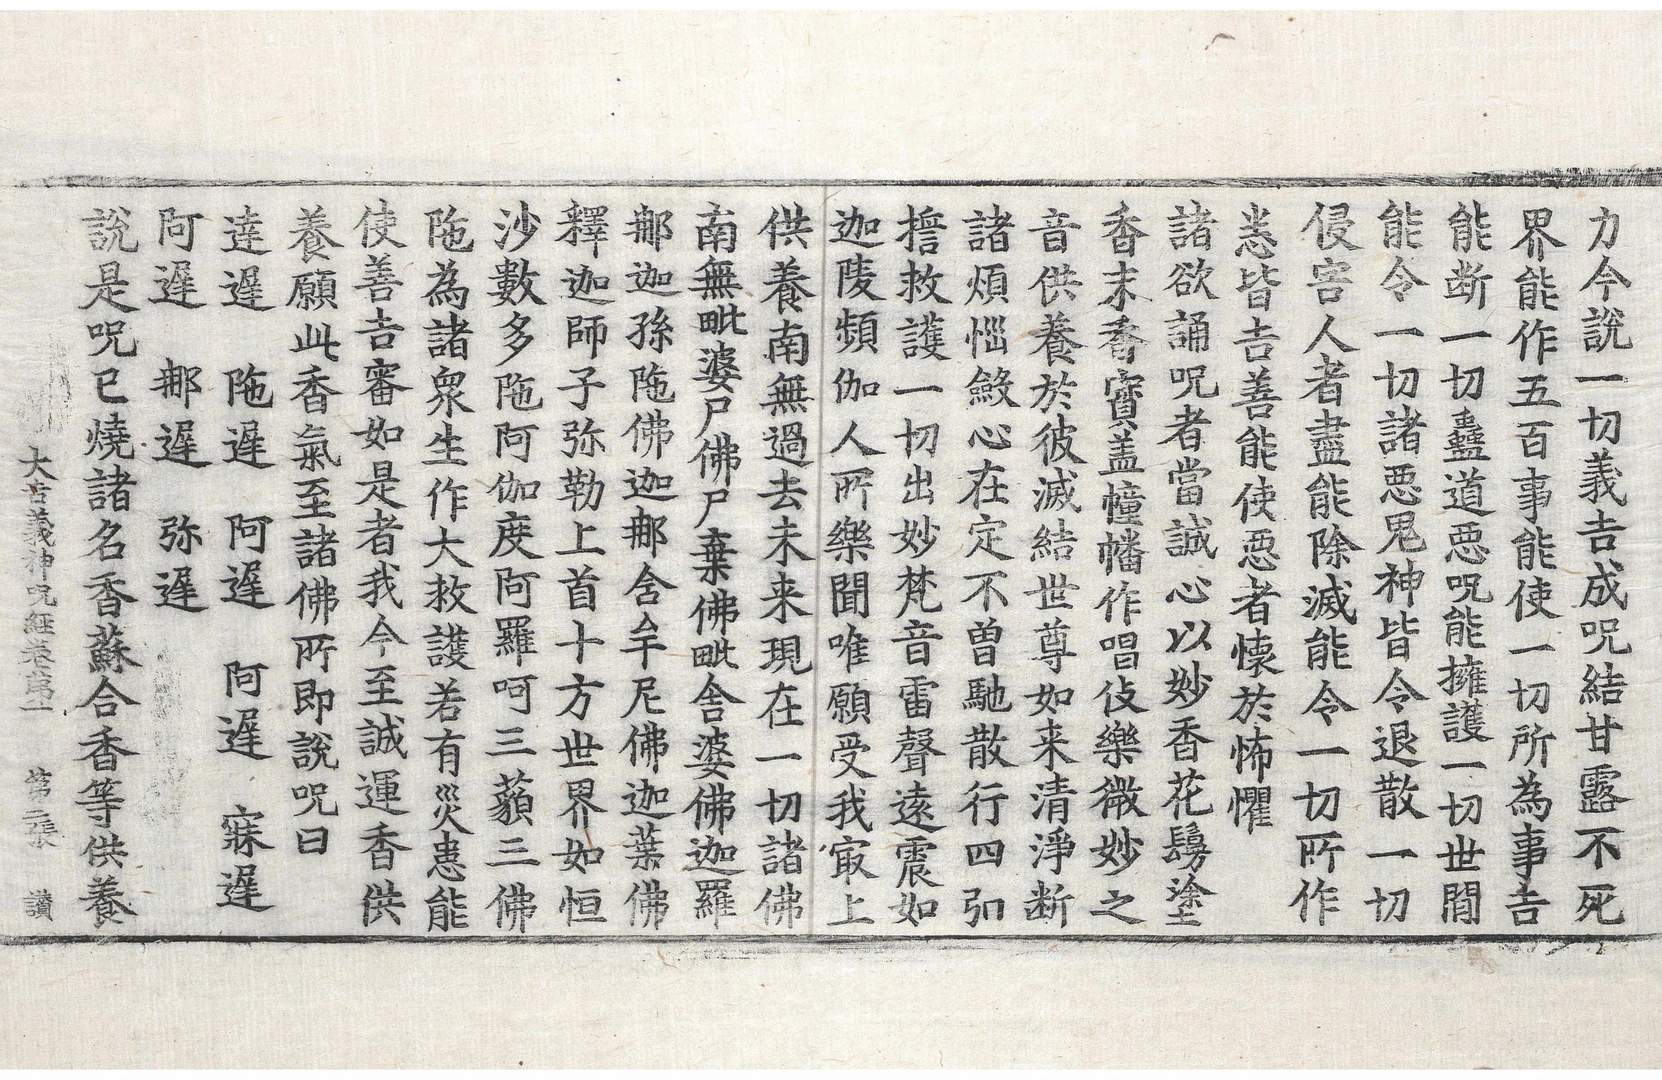 力今說一切義吉成呪結甘露不死
界能作五百事能使一切所為事吉
能断一切蠱道惡呪能擁護一切世間
能令一切諸惡鬼神皆令退散一切
侵害人者盡能除滅能令一切所作
悉皆吉善能使惡者懷於怖懼
諸欲誦呪者當誠心以妙香花鬘塗
香末香寶盖幢幡作唱伎樂微妙之
音供養於彼滅結世尊如来清淨断
諸煩惱斂心在定不曾馳散行四弘
擔救護一切出妙梵音雷聲遠震如
迦陵頻伽人所樂聞唯願受我㝡上
供養南無過去未来現在一切諸佛
南無毗婆尸佛尸棄佛毗舍婆佛迦羅
鄁迦孫陁佛迦那含牟尼佛迦葉佛
釋迦師子弥勒上首十方世界如恒
沙數多陁阿伽度阿羅呵三藐三佛
陁為諸衆生作大救護若有災患能
使善吉審如是者我今至誠運香供
養願此香氣至諸佛所即說呪曰
達遲 陁遲 阿遲 阿遲 寐遲
阿遲 那遲 弥遲
說是呪已燒諸名香蘇合香等供養
大吉義神呪經卷第一 第二張 讃